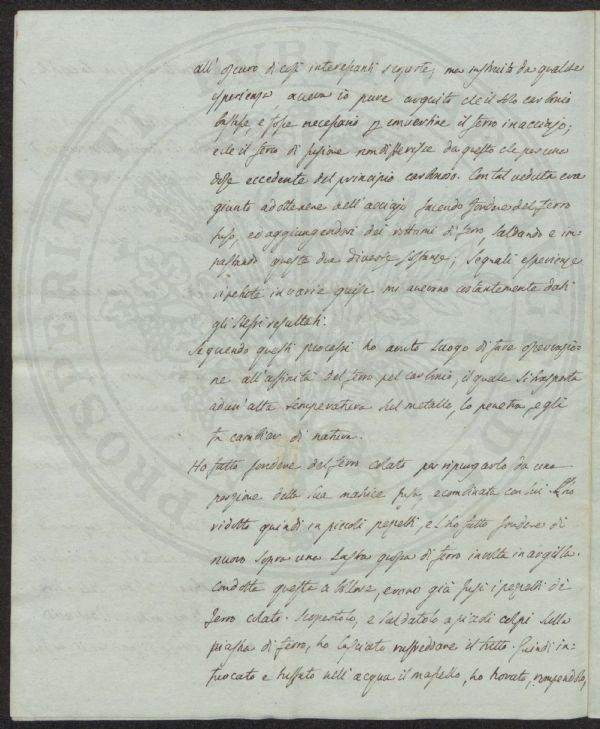 all' oscuro di così interessanti scoperte; ma instruito da qualche
sperienza aveva io pure arguito che il solo carbonio
bastasse, e fosse necessario p convertire il ferro in acciajo;
e che il ferro di fusione non differisce da questo che per una
dose eccedente del principio carbonoso. Con tal veduta era
giunto ad ottenere dell' acciajo facendo fondere del ferro
fuso, ed aggiungendovi dei rottami di ferro, saldando e im-
pastando queste due diverse sostanze; le quali esperienze
ripetute in varie guise mi avevano costantemente dati
gli stessi resultati.
Seguendo questi processi ho avuto luogo di fare osservazio-
ne all' affinità del ferro pel carbonio, il quale si trasporta
ad un' alta temperatura sul metallo, lo penetra, e gli
fa cambiar di natura.
Ho fatto fondere del ferro colato per ripurgarlo da una
porzione della sua matrice fusa, e combinata con lui. L'ho
ridotto quindi in piccoli pezzetti, e l'ho fatto fondere di
nuovo sopra una lastra grossa di ferro involta in argilla.
Condotte queste a bollore, erano già fusi i pezzetti di
ferro colato. Scopertolo, e saldatolo a piccoli colpi sulla
piastra di ferro, ho lasciato raffreddare il tutto. Quindi in-
fuocato e tuffato nell' acqua il massello, ho trovato, rompendolo,
PROSPERITATI PUBLI